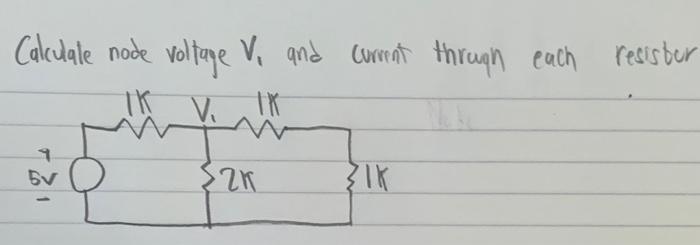 Calculate node voltage V₁ and current through each resistor
1K V₁ 1K
+
5V 2K 1K
-